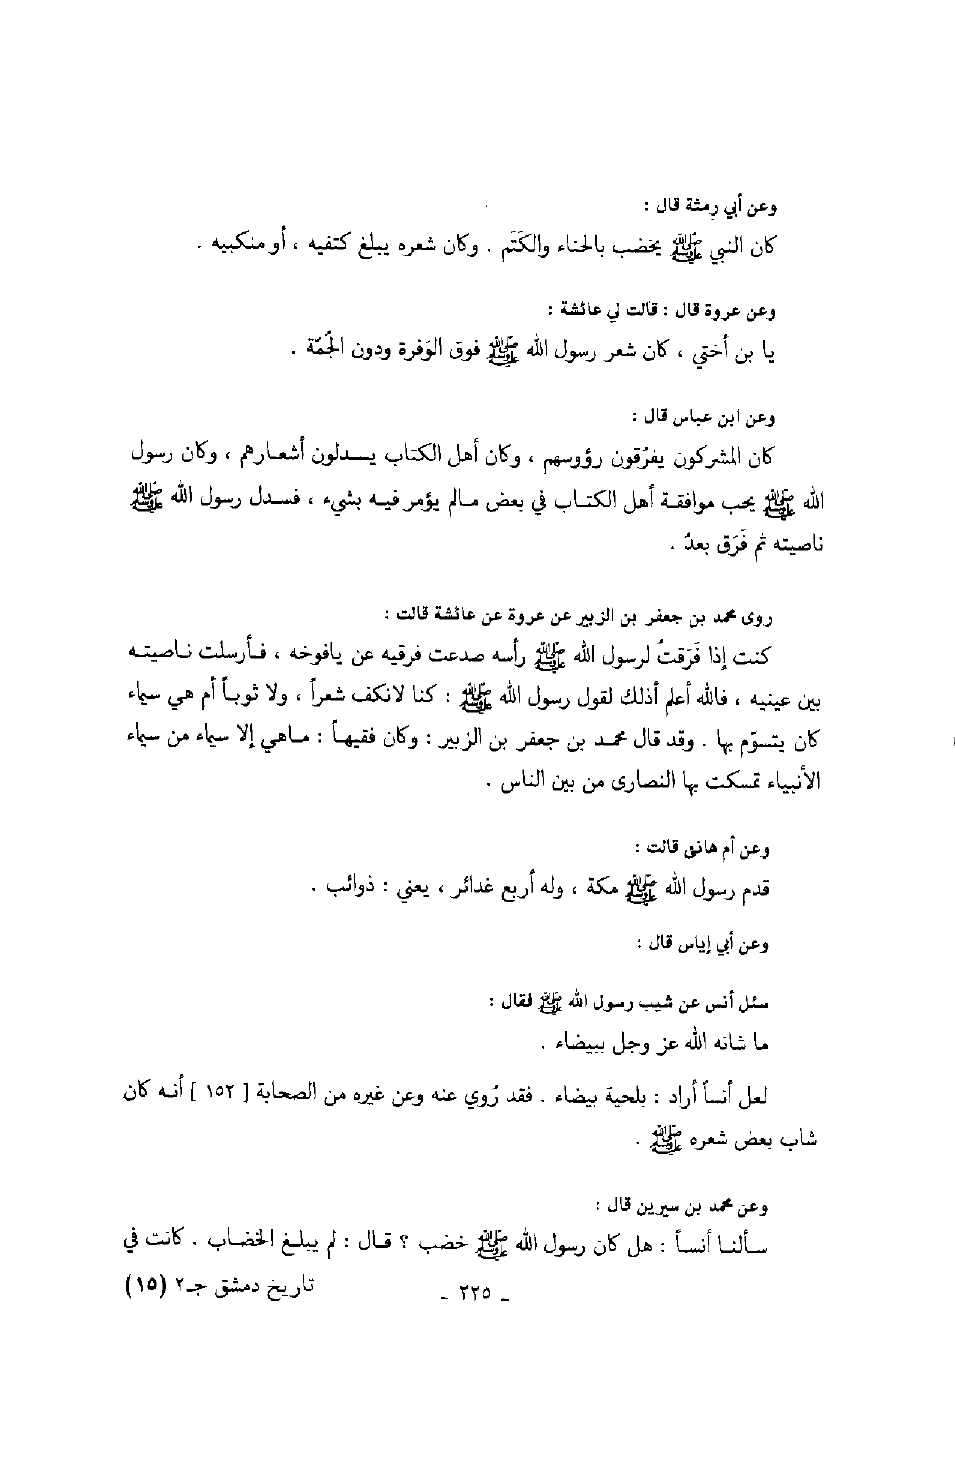 وعن أبي رمثة قال :
كان النبي ﷺ يخضب بالحناء والكَتَم . وكان شعره يبلغ كتفيه ، أو منكبيه .
وعن عروة قال : قالت لي عائشة :
يا بن أختي ، كان شعر رسول الله ﷺ فوق الوَفرة ودون الجُمّة .
وعن ابن عباس قال :
كان المشركون يفرّقون رؤوسهم ، وكان أهل الكتاب يسدلون أشعارهم ، وكان رسول
الله ﷺ يحب موافقة أهل الكتاب في بعض مالم يؤمر فيه بشيء ، فسدل رسول الله ﷺ
ناصيته ثم فَرَق بعدُ .
روى محمد بن جعفر بن الزبير عن عروة عن عائشة قالت :
كنت إذا فَرَقتُ لرسول الله ﷺ رأسه صدعت فرقيه عن يافوخه ، فأرسلت ناصيته
بين عينيه ، فالله أعلم أذلك لقول رسول الله ﷺ : كنا لانكف شعراً ، ولا ثوباً أم هي سيماء
كان يتسوّم بها . وقد قال محمد بن جعفر بن الزبير : وكان فقيهاً : ماهي إلا سيماء من سيماء
الأنبياء تمسكت بها النصارى من بين الناس .
وعن أم هانئ قالت :
قدم رسول الله ﷺ مكة ، وله أربع غدائر ، يعني : ذوائب .
وعن أبي إياس قال :
سئل أنس عن شيب رسول الله ﷺ فقال :
ما شانه الله عز وجل ببيضاء .
لعل أنساً أراد : بلحية بيضاء . فقد رُوي عنه وعن غيره من الصحابة [ ١٥٢ ] أنه كان
شاب بعض شعره ﷺ .
وعن محمد بن سيرين قال :
سألنا أنساً : هل كان رسول الله ﷺ خضب ؟ قال : لم يبلغ الخضاب . كانت في
ـ ٢٢٥ ـ
تاريخ دمشق جـ٢ (١٥)